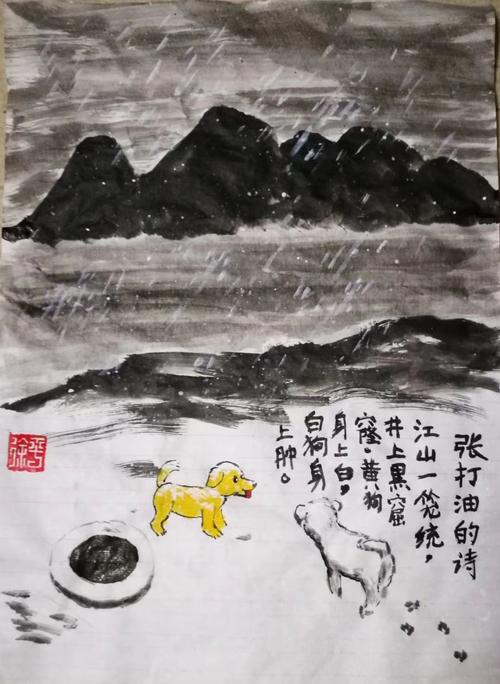 张打油的诗
江山一笼统，
井上黑窟
窿。黄狗
身上白，
白狗身
上肿。
徐平